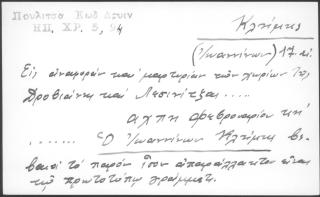 Πουλίτσα Κωδ Δρυιν
ΗΠ, ΧΡ. 5, 94
Κλήμης
(Ἰωαννίνων) 17. αἰ.
Εἰς ἀναφορὰν καὶ μαρτυρίαν τῶν χωρίων τῆς
Δροβιάνης καὶ Λεσινίτζας.....
αχπη φεβρουαρίου κη'
....... Ὁ Ἰωαννίνων Κλήμης βε-
βαιοῖ τὸ παρὸν ἴσον ἀπαράλλακτον εἶναι
τῷ πρωτοτύπῳ γράμματι.